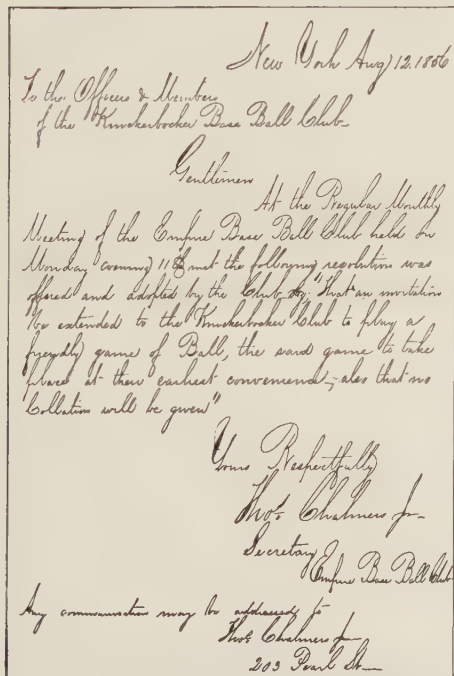 New York Aug 12. 1856
To the Officers & Members
of the Knickerbocker Base Ball Club
Gentlemen
At the Regular Monthly
Meeting of the Empire Base Ball Club held on
Monday evening 11th inst the following resolution was
offered and adopted by the Club "That an invitation
be extended to the Knickerbocker Club to play a
friendly game of Ball, the said game to take
place at their earliest convenience, also that no
Collation will be given"
Yours Respectfully
Thos. Chalmers Jr
Secretary
Empire Base Ball Club
Any communication may be addressed to
Thos. Chalmers Jr
203 Pearl St